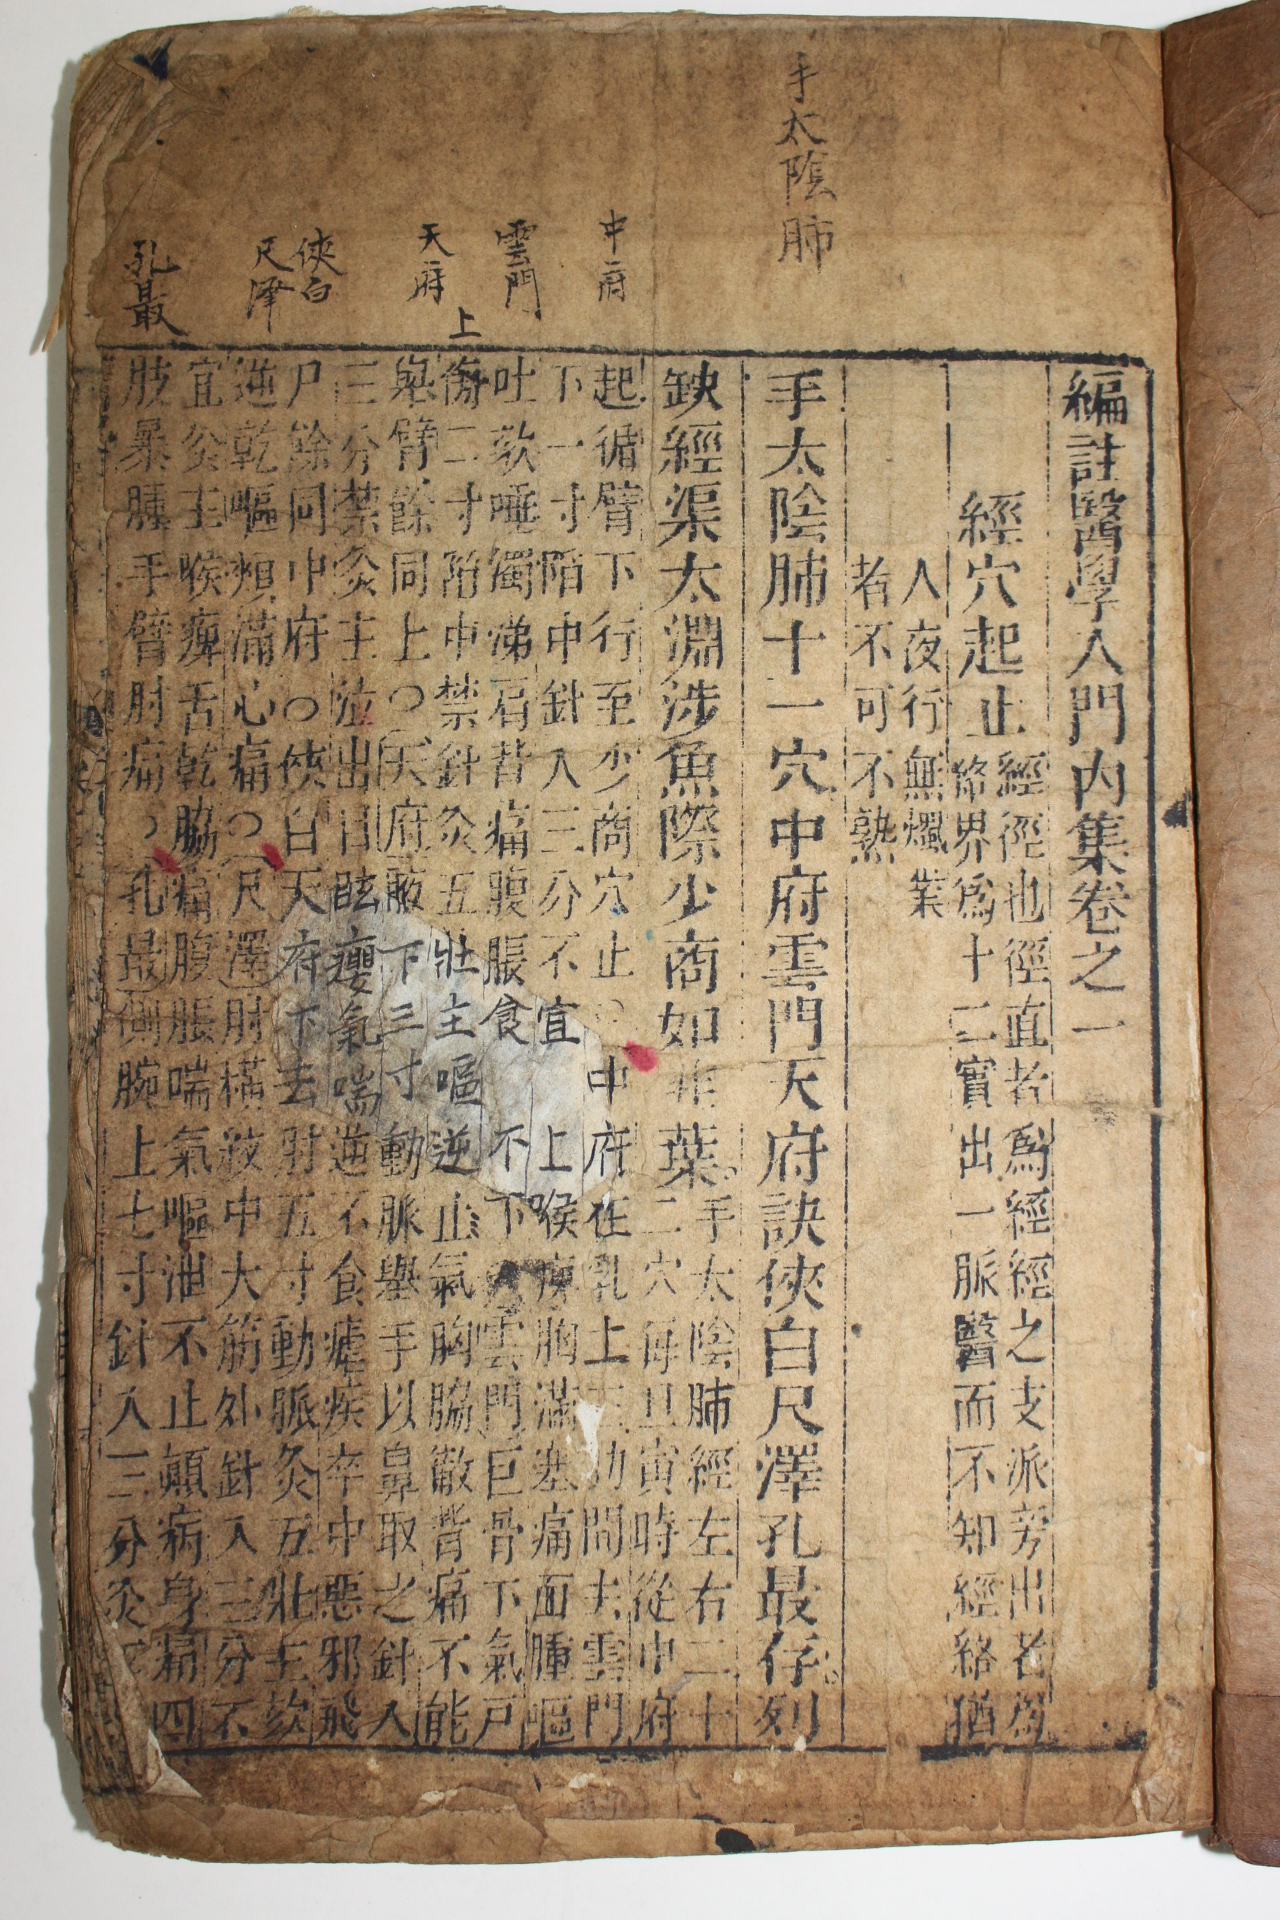 手太陰肺
中府
雲門
天府
上
俠白
尺澤
孔最
編註醫學入門內集卷之一
經穴起止
經徑也徑直者爲經經之支派旁出者爲
絡界爲十二實出一脈醫而不知經絡猶
人夜行無燭業
者不可不熟
手太陰肺十一穴中府雲門天府訣俠白尺澤孔最存列
缺經渠太淵涉魚際少商如韭葉
手太陰肺經左右二十
二穴每旦寅時從中府
起循臂下行至少商穴止○中府在乳上三肋間去雲門
下一寸陷中針入三分不宜上喉痺胸滿塞痛面腫嘔
吐欬唾濁涕肩背痛腹脹食不下○雲門巨骨下氣戶
傍二寸陷中禁針灸五壯主嘔逆上氣胸脇徹背痛不能
舉臂餘同上○天府腋下三寸動脈舉手以鼻取之針入
三分禁灸主泣出目眩癭氣喘逆不食瘧疾卒中惡邪飛
尸餘同中府○俠白天府下去肘五寸動脈灸五壯主欬
逆乾嘔煩滿心痛○尺澤肘橫紋中大筋外針入三分不
宜灸主喉痺舌乾脇痛腹脹喘氣嘔泄不止顛病身痛四
肢暴腫手臂肘痛○孔最側腕上七寸針入三分灸五